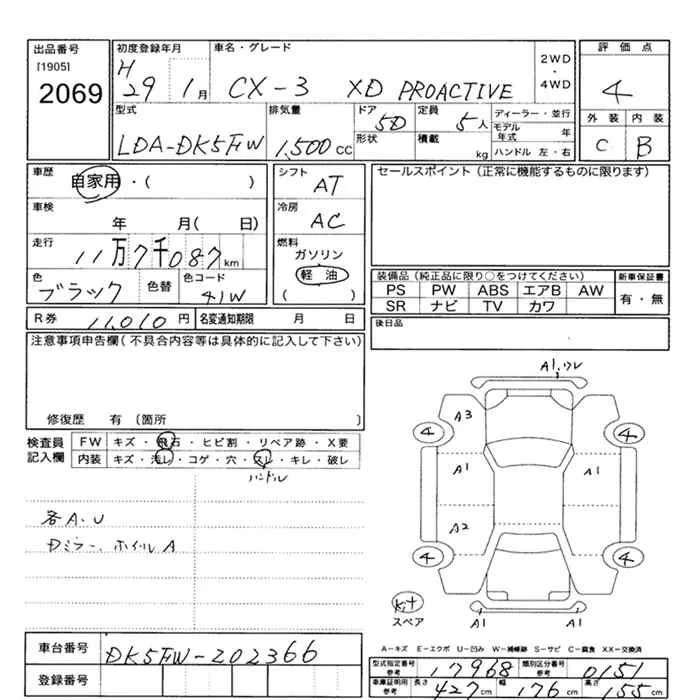 出品番号
[1905]
2069
初度登録年月
H
29 1月
車名・グレード
CX-3 XD PROACTIVE
2WD
・
4WD
評価点
4
外装 内装
C B
型式
LDA-DK5FW
排気量
1,500cc
ドア
5D
形状
定員
5人
積載
kg
ディーラー・並行
モデル年式 年
ハンドル 左・右
車歴
自家用・( )
車検
年 月( 日)
走行
11万7千087km
色
ブラック
色替
色コード
41W
シフト
AT
冷房
AC
燃料
ガソリン
軽油
( )
セールスポイント(正常に機能するものに限ります)
装備品(純正品に限り○をつけてください)
PS PW ABS エアB AW
SR ナビ TV カワ
新車保証書
有・無
R券 11,010円
名変通知期限 月 日
後日品
注意事項申告欄(不具合内容等は具体的に記入して下さい)
修復歴 有(箇所 )
検査員
記入欄
FW キズ・飛石・ヒビ割・リペア跡・X要
内装 キズ・汚レ・コゲ・穴・スレ・キレ・破レ
ハンドル
各A.U
Dミラー、ホイルA
A1.ワレ
A3
4
4
A1
A1
A2
4
4
kit
スペア
A1
A1
A-キズ E-エクボ U-凹み W-補修跡 S-サビ C-腐食 XX-交換済
車台番号
DK5FW-202366
登録番号
型式指定番号
参考
17968
類別区分番号
参考
0151
車庫証明用
参考
長さ 427cm 幅 176cm 高さ 155cm